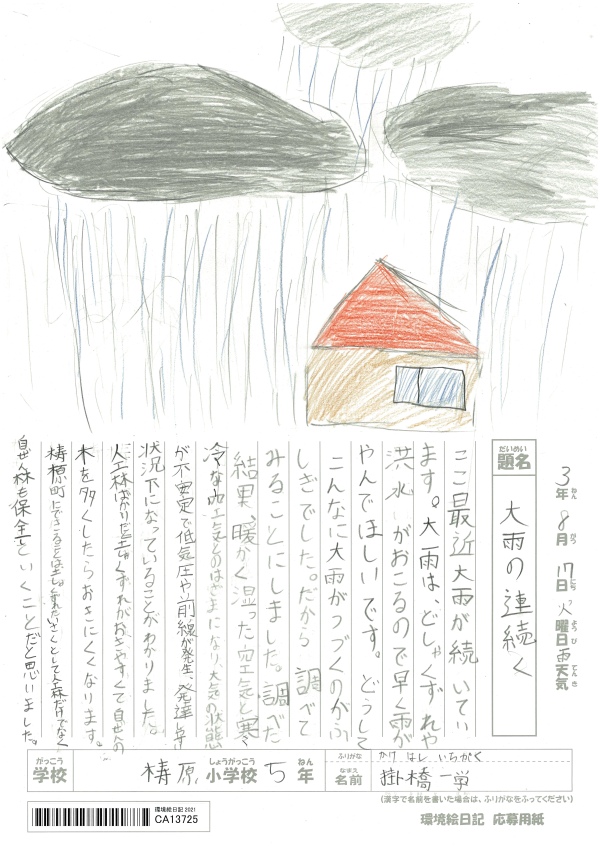 だいめい
題名
大雨の連続く
3年ねん8月がつ17日にち火曜日ようび雨天気てんき
ここ最近大雨が続いてい
ます。大雨は、どしゃくずれや
洪水がおこるので早く雨が
やんでほしいです。どうして
こんなに大雨がつづくのかふ
しぎでした。だから調べて
みることにしました。調べた
結果、暖かく湿った空気と寒
冷な空気とのはざまになり、大気の状態
が不安定で低気圧や前線が発生、発達し
状況下になっていることがわかりました。
人工林ばかりだと土しゃくずれがおきやすくて自ぜんの
木を多くしたらおきにくくなります。
梼原町にできることは土しゃくずれたいさくとして人工林だけでなく
自ぜん林も保全していくことだと思いました。
がっこう
学校
梼原
しょうがっこう
小学校
5
ねん
年
ふりがな
かけはし いちがく
なまえ
名前
掛橋一学
(漢字で名前を書いた場合は、ふりがなをふってください)
環境絵日記 2021
CA13725
環境絵日記 応募用紙